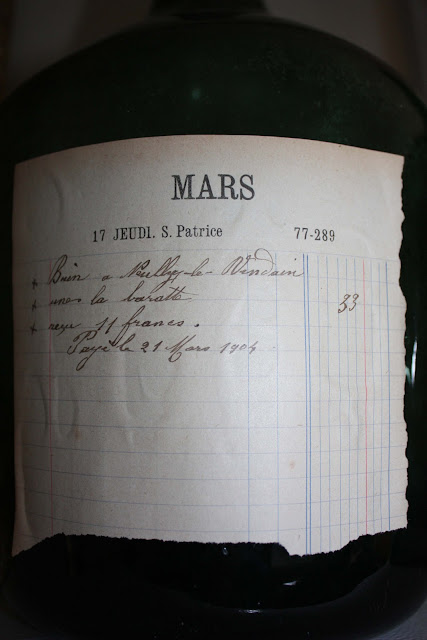 MARS
17 JEUDI. S. Patrice 77-289
+ Bien a Neuilly-le-Vendain
+ la baratte 33
+ 11 francs.
Payé le 21 Mars 1904